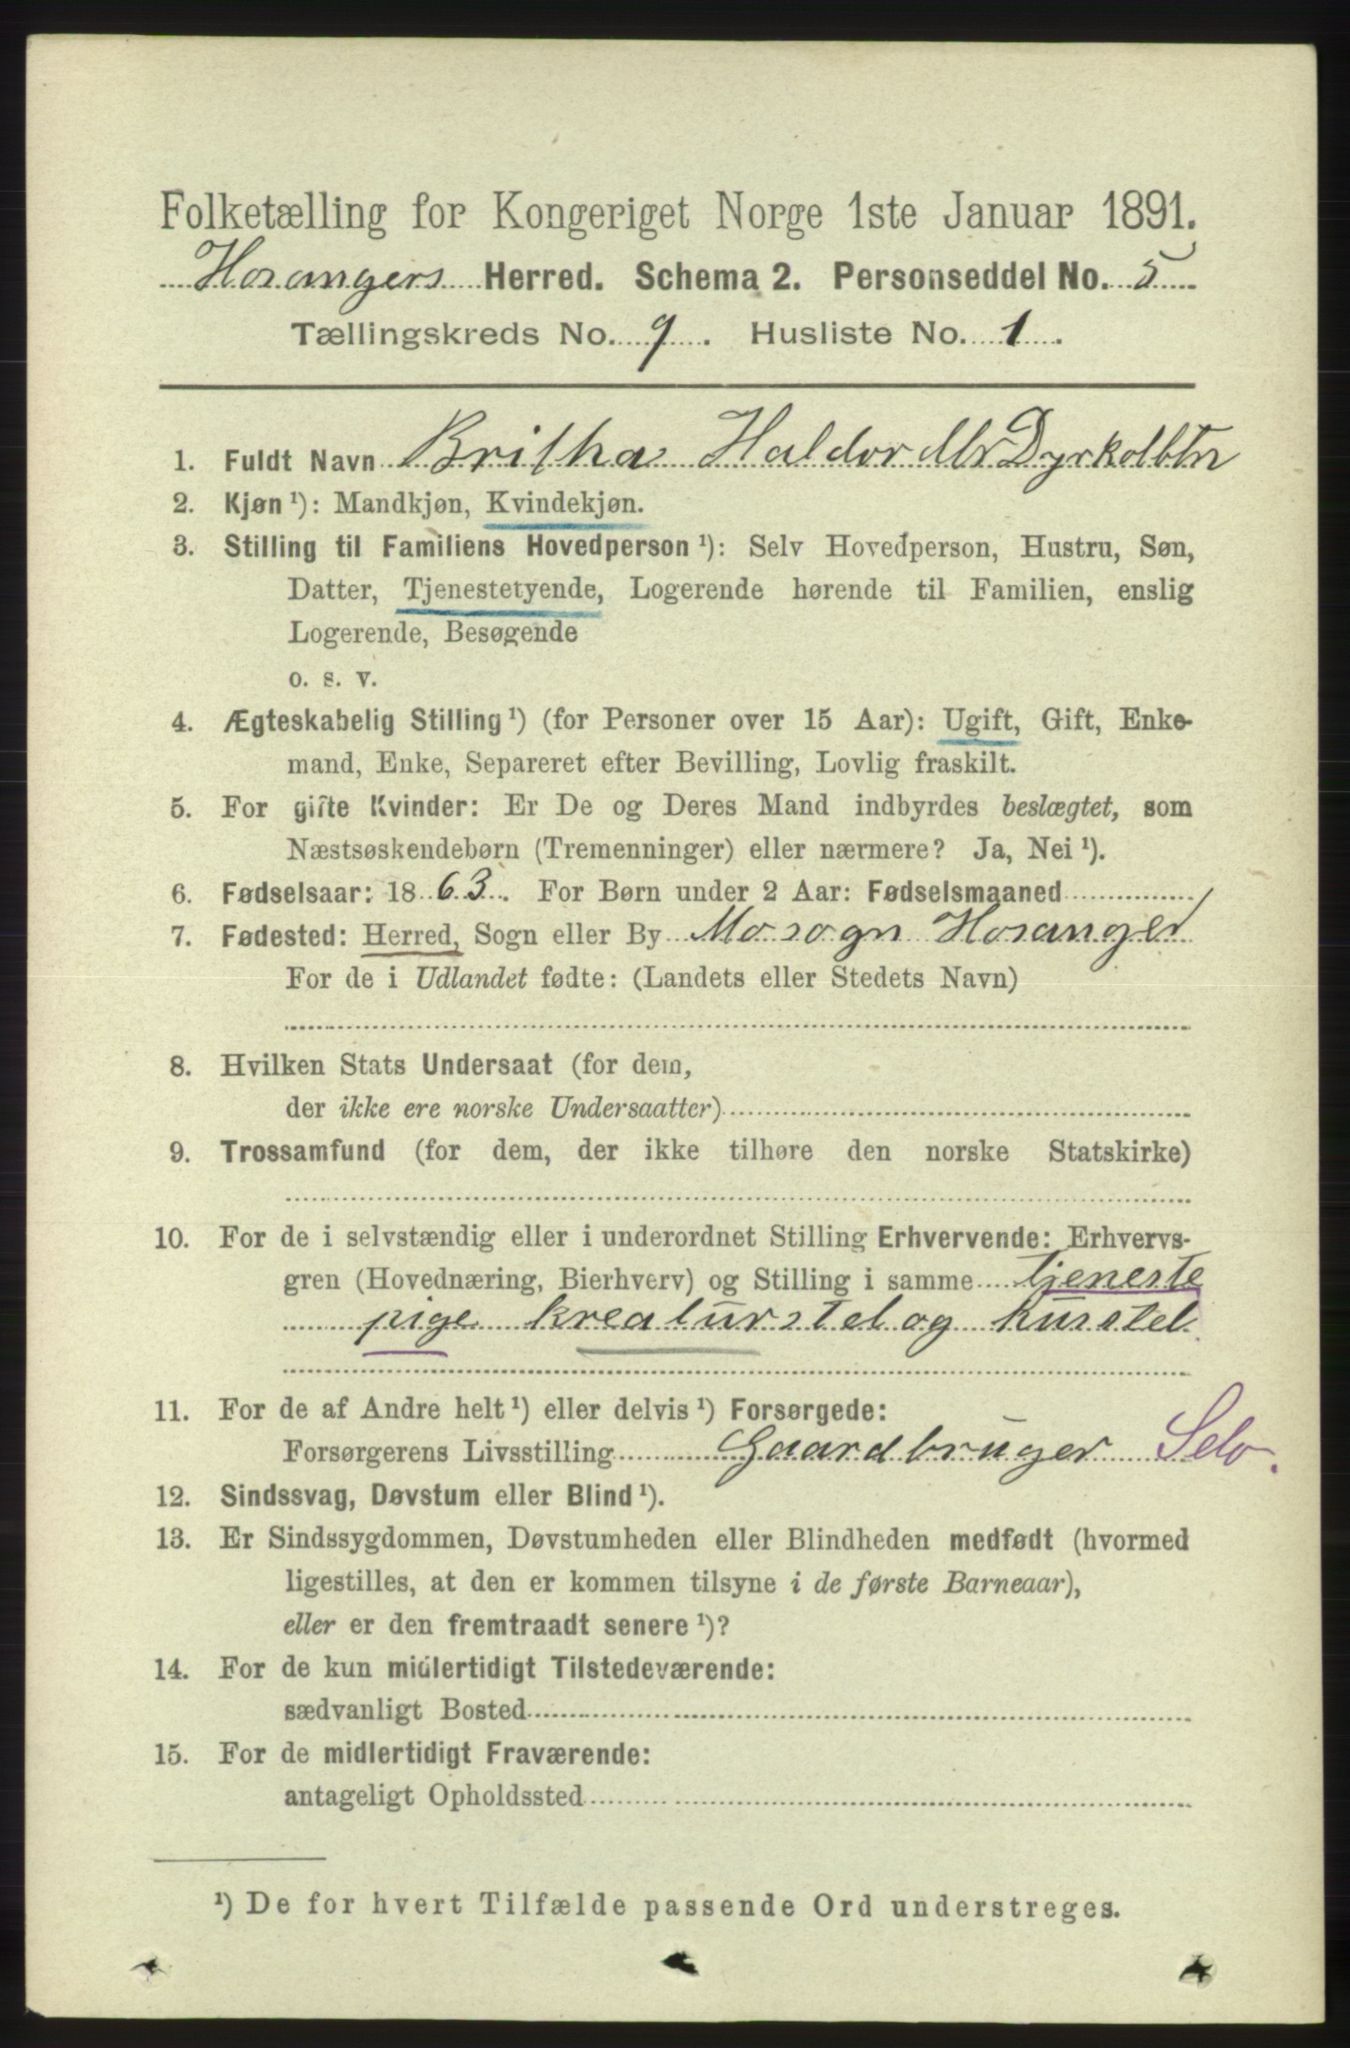 Folketælling for Kongeriget Norge 1ste Januar 1891.
Hosangers Herred. Schema 2. Personseddel No. 5
Tællingskreds No. 9. Husliste No. 1.
1. Fuldt Navn Britha Haldor Dyrkolbtn
2. Kjøn ¹): Mandkjøn, Kvindekjøn.
3. Stilling til Familiens Hovedperson ¹): Selv Hovedperson, Hustru, Søn,
Datter, Tjenestetyende, Logerende hørende til Familien, enslig
Logerende, Besøgende
o. s. v.
4. Ægteskabelig Stilling ¹) (for Personer over 15 Aar): Ugift, Gift, Enke-
mand, Enke, Separeret efter Bevilling, Lovlig fraskilt.
5. For gifte Kvinder: Er De og Deres Mand indbyrdes beslægtet, som
Næstsøskendebørn (Tremenninger) eller nærmere? Ja, Nei ¹).
6. Fødselsaar: 1863. For Børn under 2 Aar: Fødselsmaaned
7. Fødested: Herred, Sogn eller By Mosogn Hosanger
For de i Udlandet fødte: (Landets eller Stedets Navn)
8. Hvilken Stats Undersaat (for dem,
der ikke ere norske Undersaatter)
9. Trossamfund (for dem, der ikke tilhøre den norske Statskirke)
10. For de i selvstændig eller i underordnet Stilling Erhvervende: Erhvervs-
gren (Hovednæring, Bierhverv) og Stilling i samme tjeneste
pige kreaturstel og husstel
11. For de af Andre helt ¹) eller delvis ¹) Forsørgede:
Forsørgerens Livsstilling Gaardbruger Selv.
12. Sindssvag, Døvstum eller Blind ¹).
13. Er Sindssygdommen, Døvstumheden eller Blindheden medfødt (hvormed
ligestilles, at den er kommen tilsyne i de første Barneaar),
eller er den fremtraadt senere ¹)?
14. For de kun midlertidigt Tilstedeværende:
sædvanligt Bosted
15. For de midlertidigt Fraværende:
antageligt Opholdssted
¹) De for hvert Tilfælde passende Ord understreges.